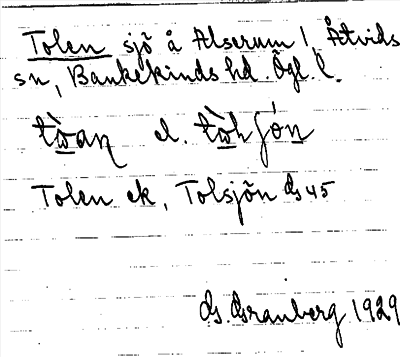 Tolen sjö å Alserum 1, Åtvids
sn, Bankekinds hd. Ögl. l.
el.
Tolen ek, Tolsjön Gs 45
G. Granberg 1929